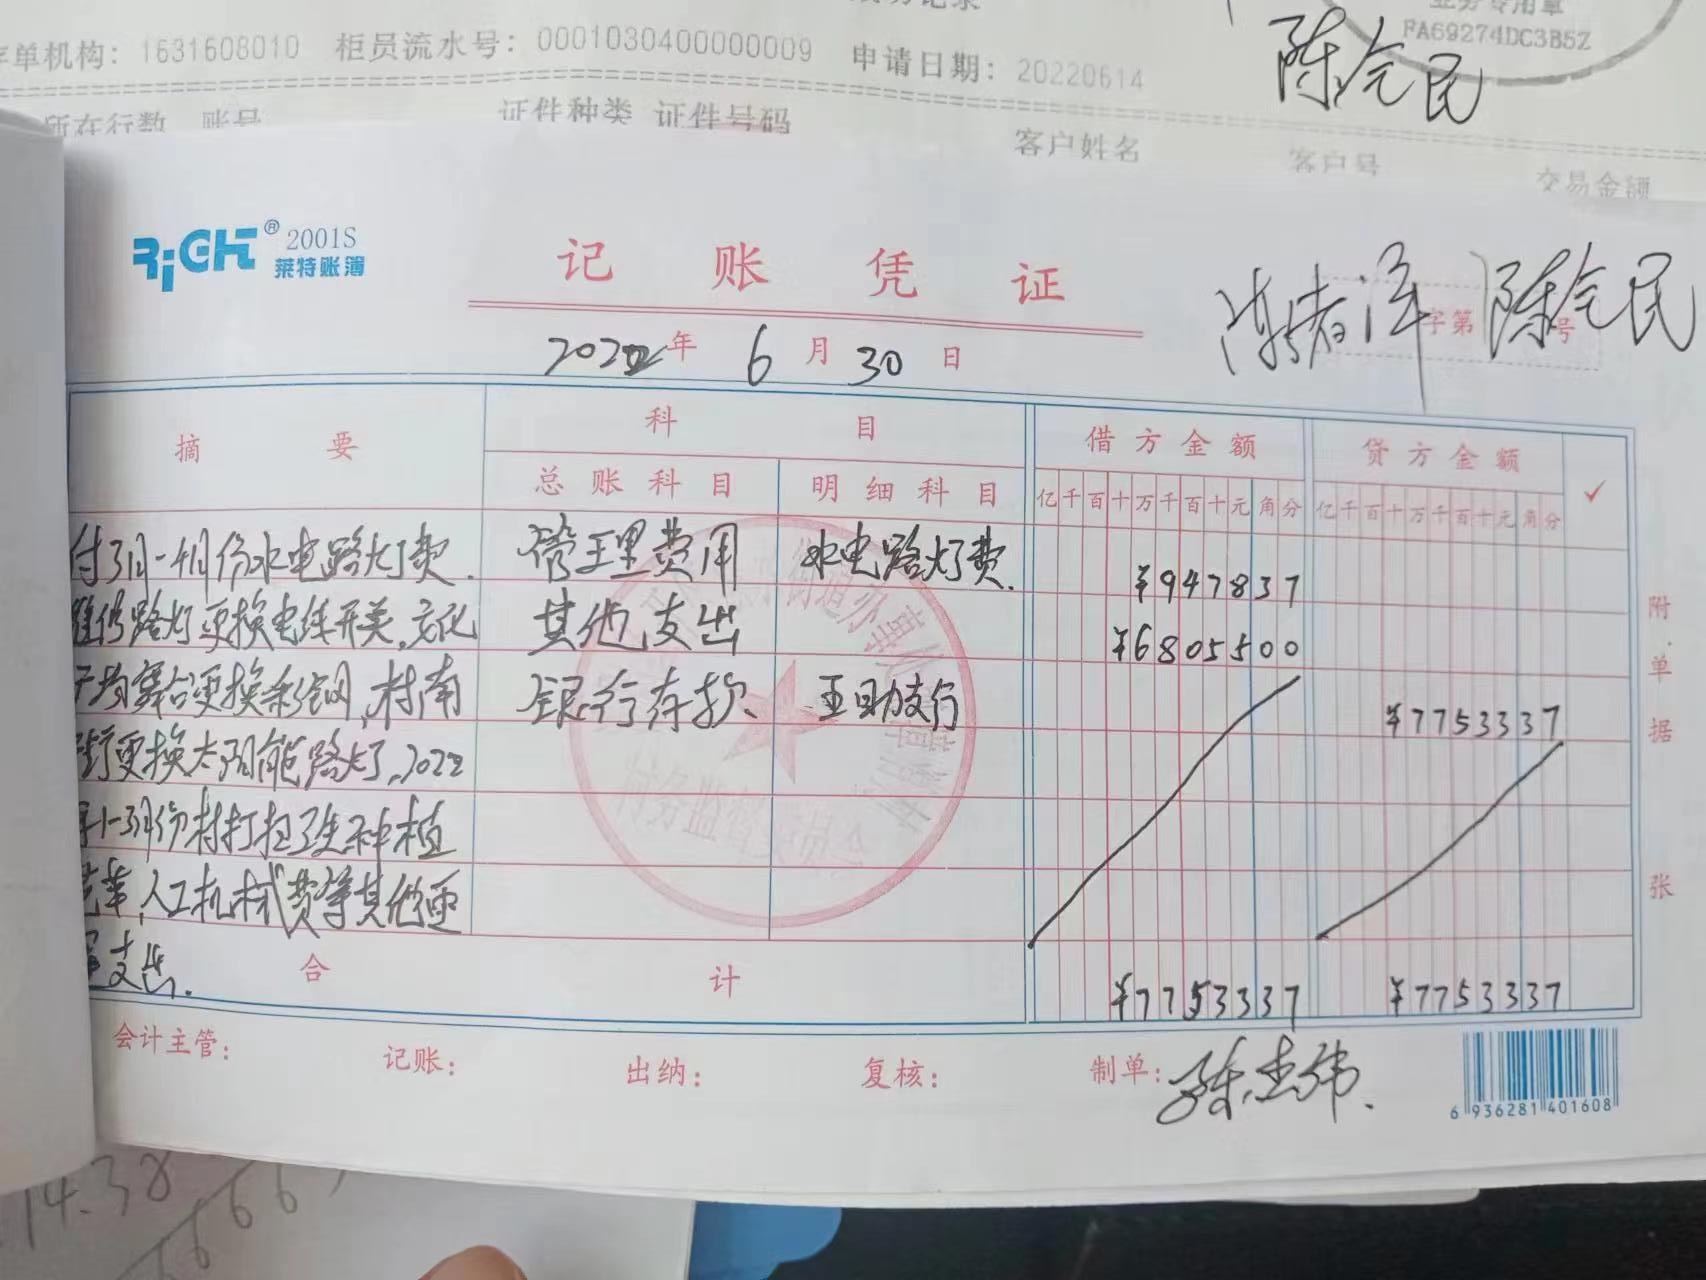 单机构：1631608010 柜员流水号：0001030400000009 申请日期：20220614
业务专用章
FA69274DC3B5Z
陈仓民
所在行数 账号 证件种类 证件号码 客户姓名 客户号 交易金额
RiGHT® 2001S
莱特账簿
记账凭证
字第 号
陈仓民
2022年 6月 30日
摘要 科目 借方金额 贷方金额 ✓
总账科目 明细科目 亿千百十万千百十元角分 亿千百十万千百十元角分
付3月-4月份水电路灯费. 管理费用 水电路灯费. ¥947837
维修路灯更换电线开关,文化 其他支出 ¥6805500
舞台更换彩钢,村南 银行存款、 互助支行 ¥7753337
街更换太阳能路灯,2022
年1-3月份村打扫卫生种植
花草,人工机械费等其他
支出.
合计 ¥7753337 ¥7753337
村务监督委员会
附单据 张
会计主管： 记账： 出纳： 复核： 制单：
6 936281 401608
14.38